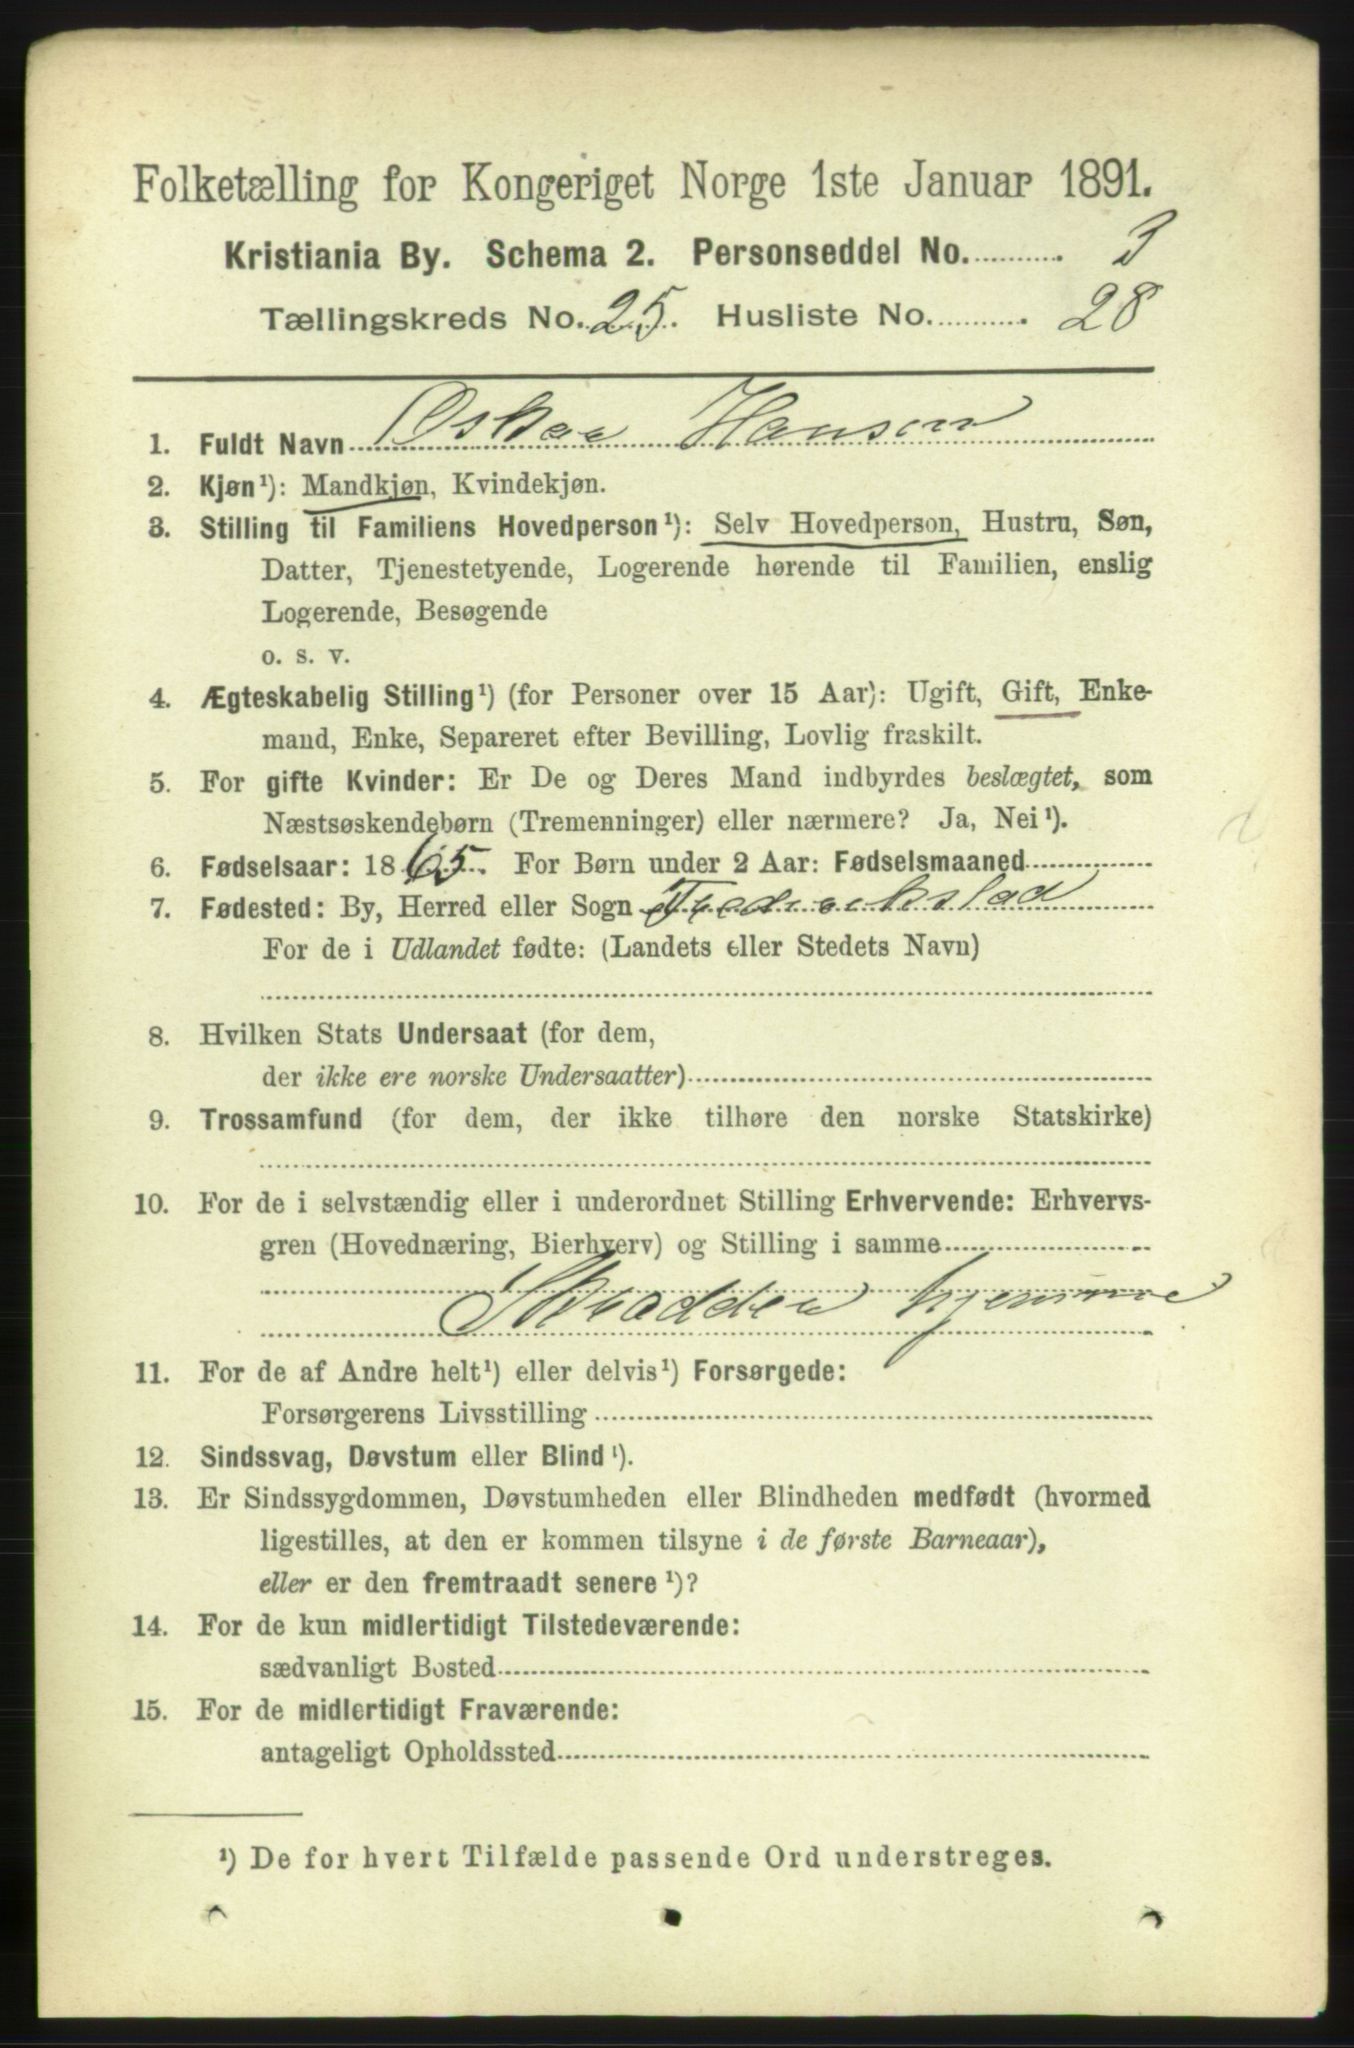 Folketælling for Kongeriget Norge 1ste Januar 1891.
Kristiania By. Schema 2. Personseddel No. 3
Tællingskreds No. 25. Husliste No. 28
1. Fuldt Navn Oskar Hansen
2. Kjøn¹): Mandkjøn, Kvindekjøn.
3. Stilling til Familiens Hovedperson¹): Selv Hovedperson, Hustru, Søn,
Datter, Tjenestetyende, Logerende hørende til Familien, enslig
Logerende, Besøgende
o. s. v.
4. Ægteskabelig Stilling¹) (for Personer over 15 Aar): Ugift, Gift, Enke-
mand, Enke, Separeret efter Bevilling, Lovlig fraskilt.
5. For gifte Kvinder: Er De og Deres Mand indbyrdes beslægtet, som
Næstsøskendebørn (Tremenninger) eller nærmere? Ja, Nei¹).
6. Fødselsaar: 1865. For Børn under 2 Aar: Fødselsmaaned
7. Fødested: By, Herred eller Sogn Fredrickstad
For de i Udlandet fødte: (Landets eller Stedets Navn)
8. Hvilken Stats Undersaat (for dem,
der ikke ere norske Undersaatter)
9. Trossamfund (for dem, der ikke tilhøre den norske Statskirke)
10. For de i selvstændig eller i underordnet Stilling Erhvervende: Erhvervs-
gren (Hovednæring, Bierhverv) og Stilling i samme
Skrædder hjemme
11. For de af Andre helt¹) eller delvis¹) Forsørgede:
Forsørgerens Livsstilling
12. Sindssvag, Døvstum eller Blind¹).
13. Er Sindssygdommen, Døvstumheden eller Blindheden medfødt (hvormed
ligestilles, at den er kommen tilsyne i de første Barneaar),
eller er den fremtraadt senere¹)?
14. For de kun midlertidigt Tilstedeværende:
sædvanligt Bosted
15. For de midlertidigt Fraværende:
antageligt Opholdssted
¹) De for hvert Tilfælde passende Ord understreges.